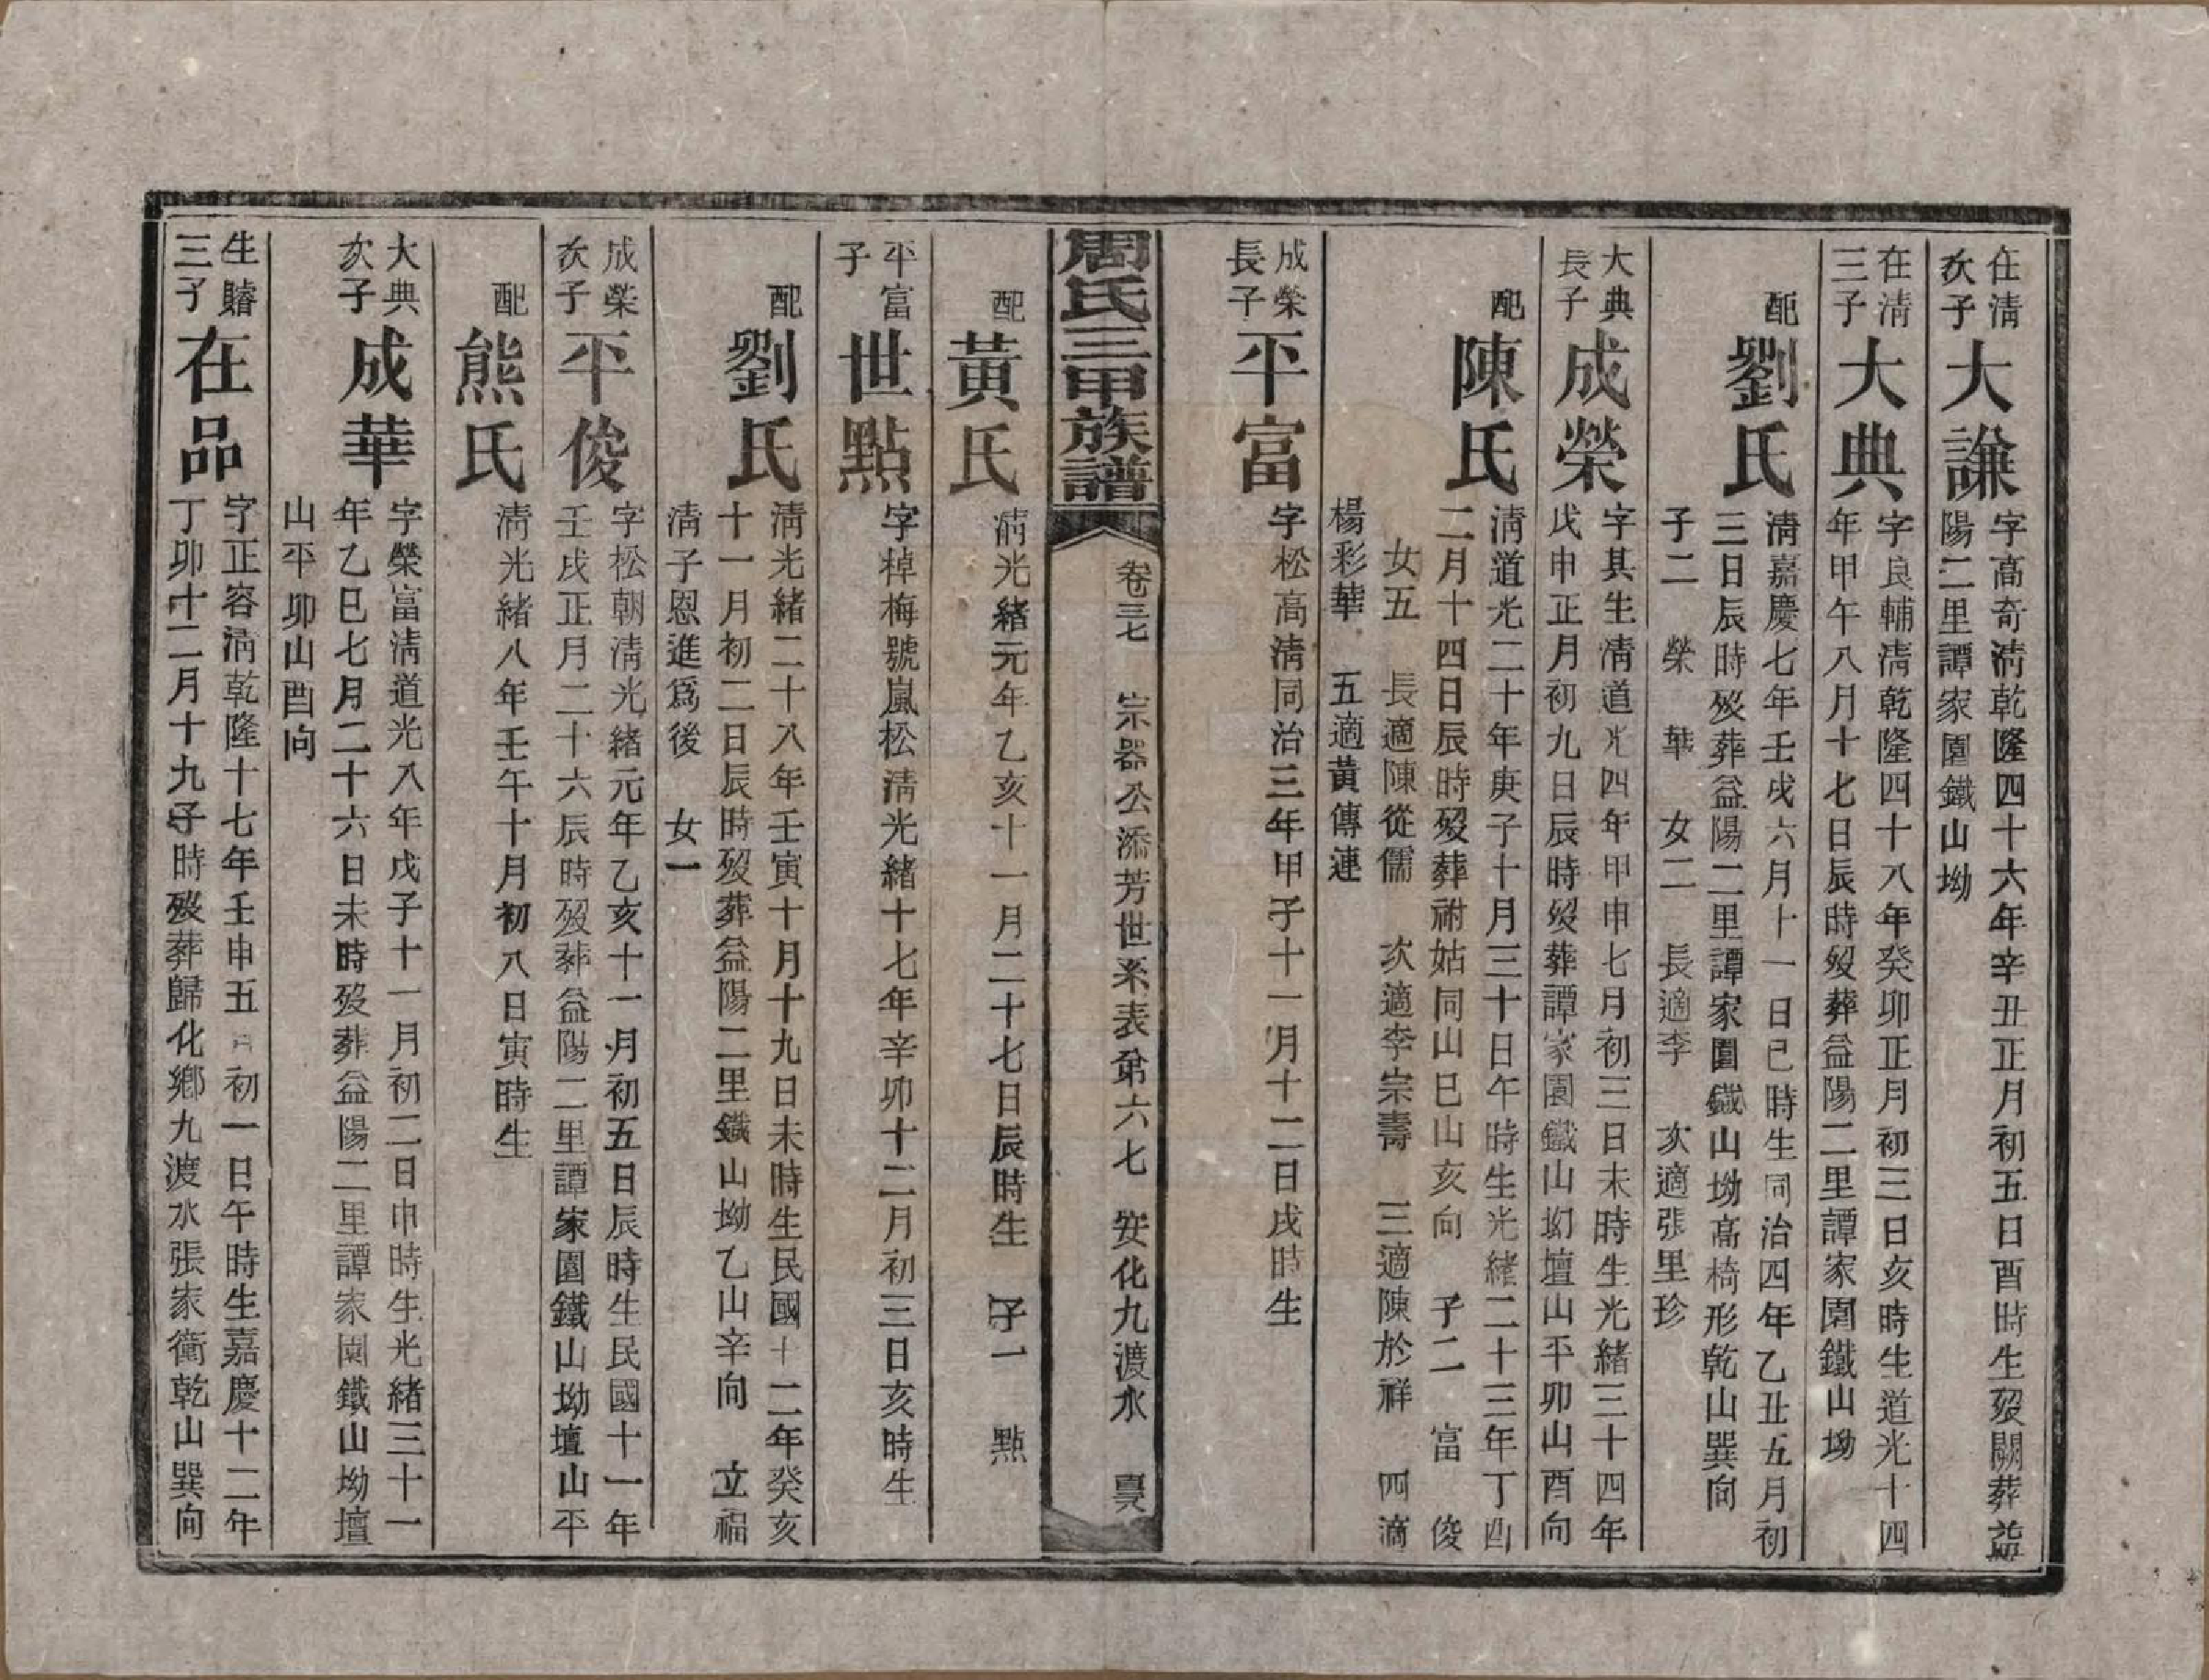 在淸
次子
大謙
字高奇淸乾隆四十六年辛丑正月初五日酉時生歿闕葬益
陽二里譚家園鐵山坳
在淸
三子
大典
字良輔淸乾隆四十八年癸卯正月初三日亥時生道光十四
年甲午八月十七日辰時歿葬益陽二里譚家園鐵山坳
配
劉氏
淸嘉慶七年壬戌六月十一日巳時生同治四年乙丑五月初
三日辰時歿葬益陽二里譚家園鐵山坳高椅形乾山巽向
子二 榮 華 女二 長適李 次適張里珍
大典
長子
成榮
字其生淸道光四年甲申七月初三日未時生光緒三十四年
戊申正月初九日辰時歿葬譚家園鐵山坳壇山平卯山酉向
配
陳氏
淸道光二十年庚子十月三十日午時生光緒二十三年丁酉
二月十四日辰時歿葬祔姑同山巳山亥向 子二 富 俊
女五 長適陳從儒 次適李宗壽 三適陳於祥 四適
楊彩華 五適黃傳連
成榮
長子
平富
字松高淸同治三年甲子十一月十二日戌時生
周氏三甲族譜
卷三七 宗器公添芳世系表第六七 安化九渡水
配
黃氏
淸光緒元年乙亥十一月二十七日辰時生 子一 點
平富
子
世點
字棹梅號嵐松淸光緒十七年辛卯十二月初三日亥時生
配
劉氏
淸光緒二十八年壬寅十月十九日未時生民國十二年癸亥
十一月初二日辰時歿葬益陽二里鐵山坳乙山辛向 立福
淸子恩進爲後 女一
成榮
次子
平俊
字松朝淸光緒元年乙亥十一月初五日辰時生民國十一年
壬戌正月二十六辰時歿葬益陽二里譚家園鐵山坳壇山平
配
熊氏
淸光緒八年壬午十月初八日寅時生
大典
次子
成華
字榮富淸道光八年戊子十一月初二日申時生光緒三十一
年乙巳七月二十六日未時歿葬益陽二里譚家園鐵山坳壇
山平卯山酉向
生賰
三子
在品
字正容淸乾隆十七年壬申五月初一日午時生嘉慶十二年
丁卯十二月十九子時歿葬歸化鄉九渡水張家衝乾山巽向